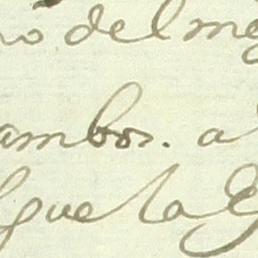 no del me
ambos. a
que la